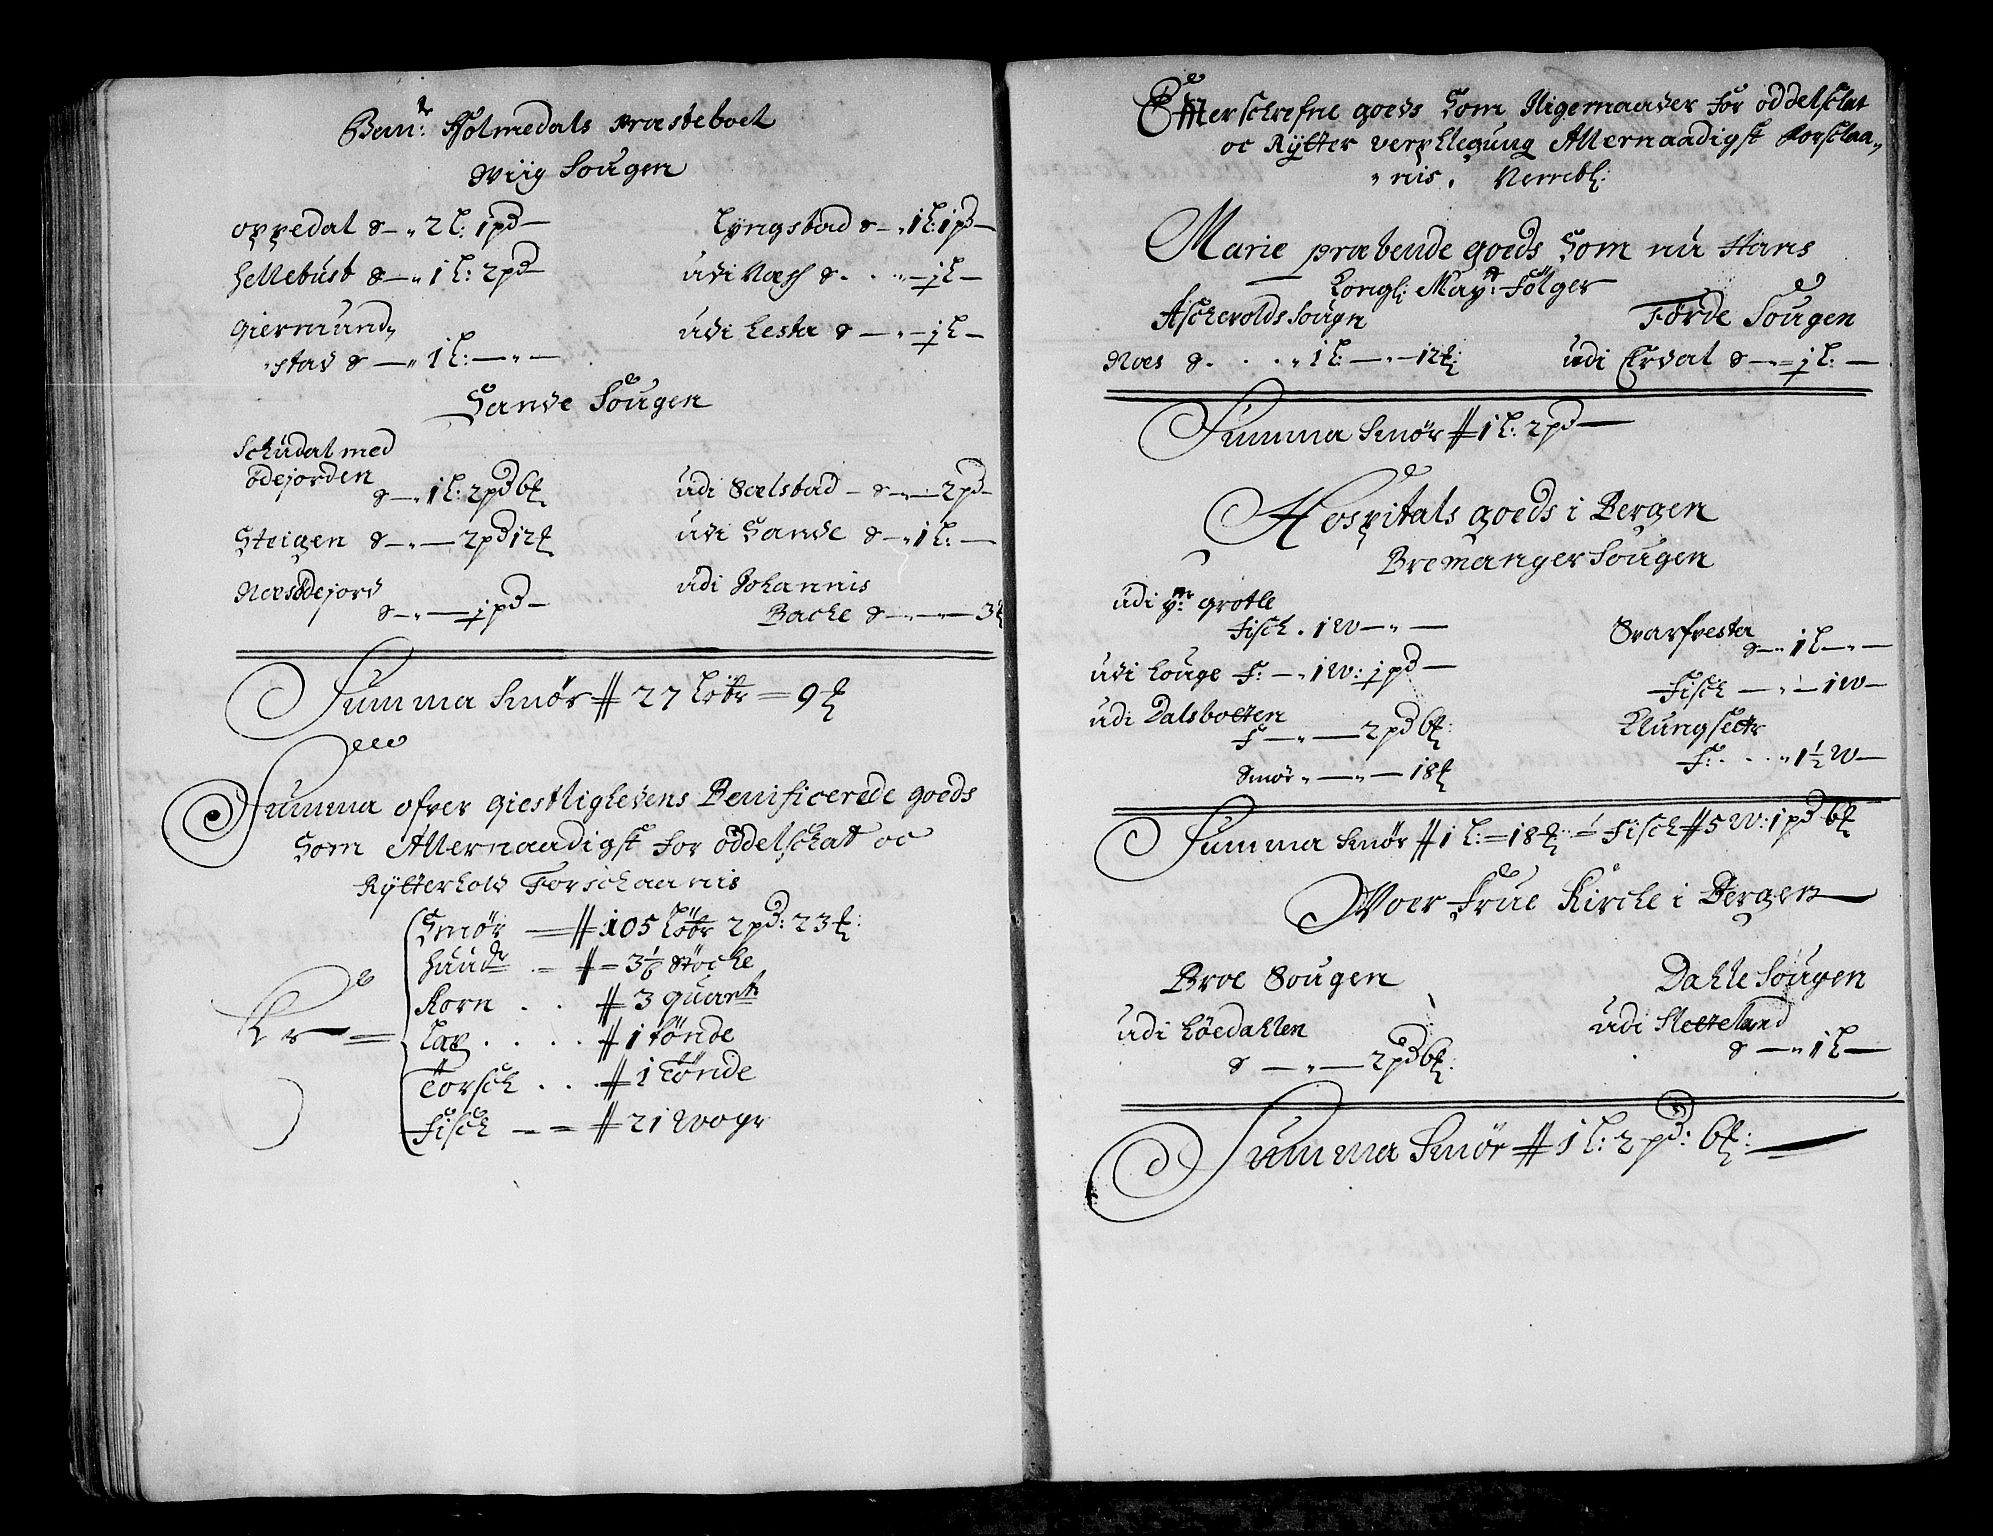 Ben: Holmedals Præsteboel
Wiig Sougen
Oppedal S — „ 2 L: 1 pd —
Hellebust S — „ 1 L: 2 pd —
Giermund„
„stad S — „ 1 L: — „ —
Lyngstad S — „ 1 L: 1 pd —
udi Næss S . . „ — ½ L —
udi Lesta S — „ — ½ L —
Sande Sougen
Schudal med
ödejorden
S — „ 1 L: 2 pd 6 ℔
Steigen S — „ — 2 pd 12 ℔
Næsödejord
S — „ — ½ pd —
udi Sælstad — S — „ — 2 pd —
udi Sande S — „ 1 L: —
udi Johannis
Backe S — „ — 3 ℔
Summa Smør # 27 Löbr = 9 ℔
Summa ofver Giestlighedens Benificerede goeds
Som Allernaadigst for oddelschat oc
Rÿtterhold Forschaanis
Er =
Smør — # 105 Löbr 2 pd: 23 ℔:
Huuder . = # = 3 1/6 Støcke
Korn . . # 3 quart
Lax . . . . # 1 tönde
Torsch . . . # 1 Tönde
Fisch — = # 21 Wogr
Efterschrefne goeds Som Ligemaader for oddelschat
oc Rÿtter verpflegung Allernaadigst Forschaa„
„nis. Nembl:
Marie præbende goeds Som nu Hans
Kongl: Mayt: Fölger
Ascherolds Sougn
Förde Sougen
Næs S. . . „ 1 L: — „ — 12 ℔:
udi Erdal S — „ = ½ L: —
Summa Smør # 1 L: 2 pd —
Hospitals goeds i Bergen
Bremanger Sougen
udi yr: Grotle
Fisch . 1 W — „ —
udi Louge F: — „ 1 W: ½ pd —
udi Dalsbotten
F — „ — 2 pd 6 ℔:
Smør „ — „ — 18 ℔
Svarfvesta
S — „ 1 L — „ —
Fisch — „ — 1 W —
Klungsetr
F: . . „ 1 ½ W —
Summa Smør # 1 L: = 18 ℔: = Fisch # 5 W: 1 pd 6 ℔
Woer Frue Kircke i Bergen
Broe Sougen
Dahle Sougen
udi Löedahlen
S — „ — 2 pd 6 ℔:
udi Sletteland
S — „ 1 L —
Summa Smør # 1 L: 2 pd: 6 ℔: —